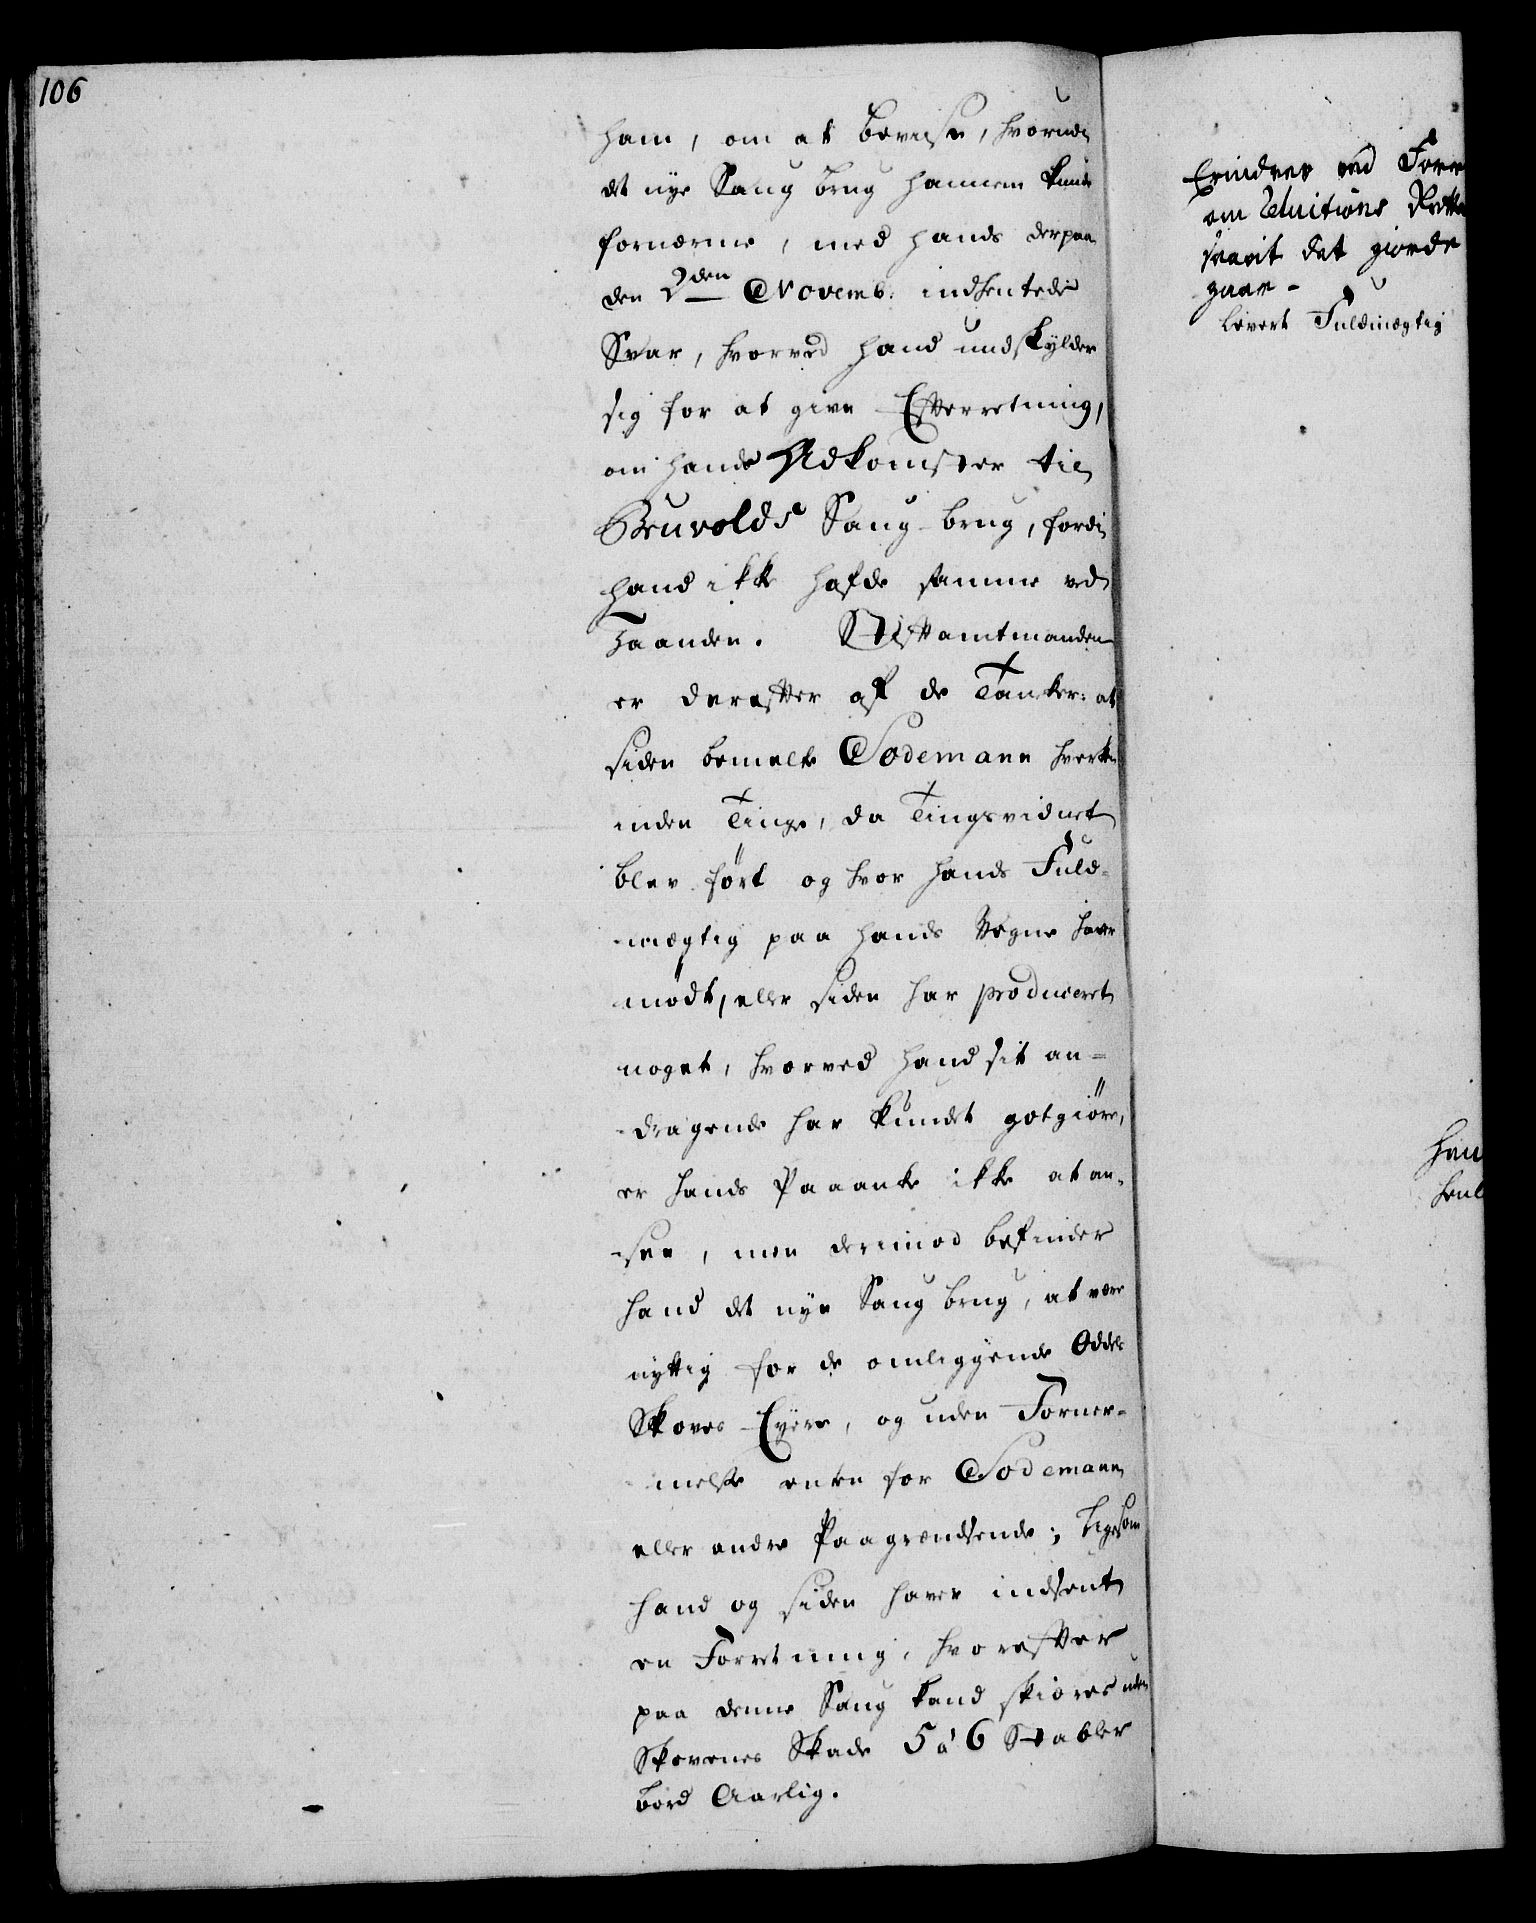 106
ham, om at bevise, hvorudi
det nye Saug brug hannem kunde
fornærme, med hands derpaa
den 2den Novemb: indhentede
Svar, hvorved hand undskylder
sig for at give Efterretning,
om hands Adkomster til
Bruvolds Saug-brug, fordi
hand ikke hafde samme ved
Haanden. Stiftamtmanden
er derefter af de Tanker: at
siden bemelte Sodemann hverken
inden Tinge, da Tingsvidnet
blev ført og hvor hands Fuld-
-mægtig paa hands Vegne haver
mødt, eller siden har produceret
noget, hvorved hand sit an-
-dragende har kundet gotgiøre,
er hands Paaanke ikke at an-
-see, men derimod befinder
hand det nye Saug brug, at være
nyttig for de omliggende Odels
Skoves Eyere, og uden Forner-
-melse enten for Sodemann
eller andre Paagrændsende; ligesom
hand og siden haver indsent
en Forretning, hvorefter
paa denne Saug kand skiæres uden
Skovenes Skade 5 à 6 Stabler
bord Aarlig.
Erindres ved Forr
om
svarit det giorde
gaar-
levert Fuldmægtig